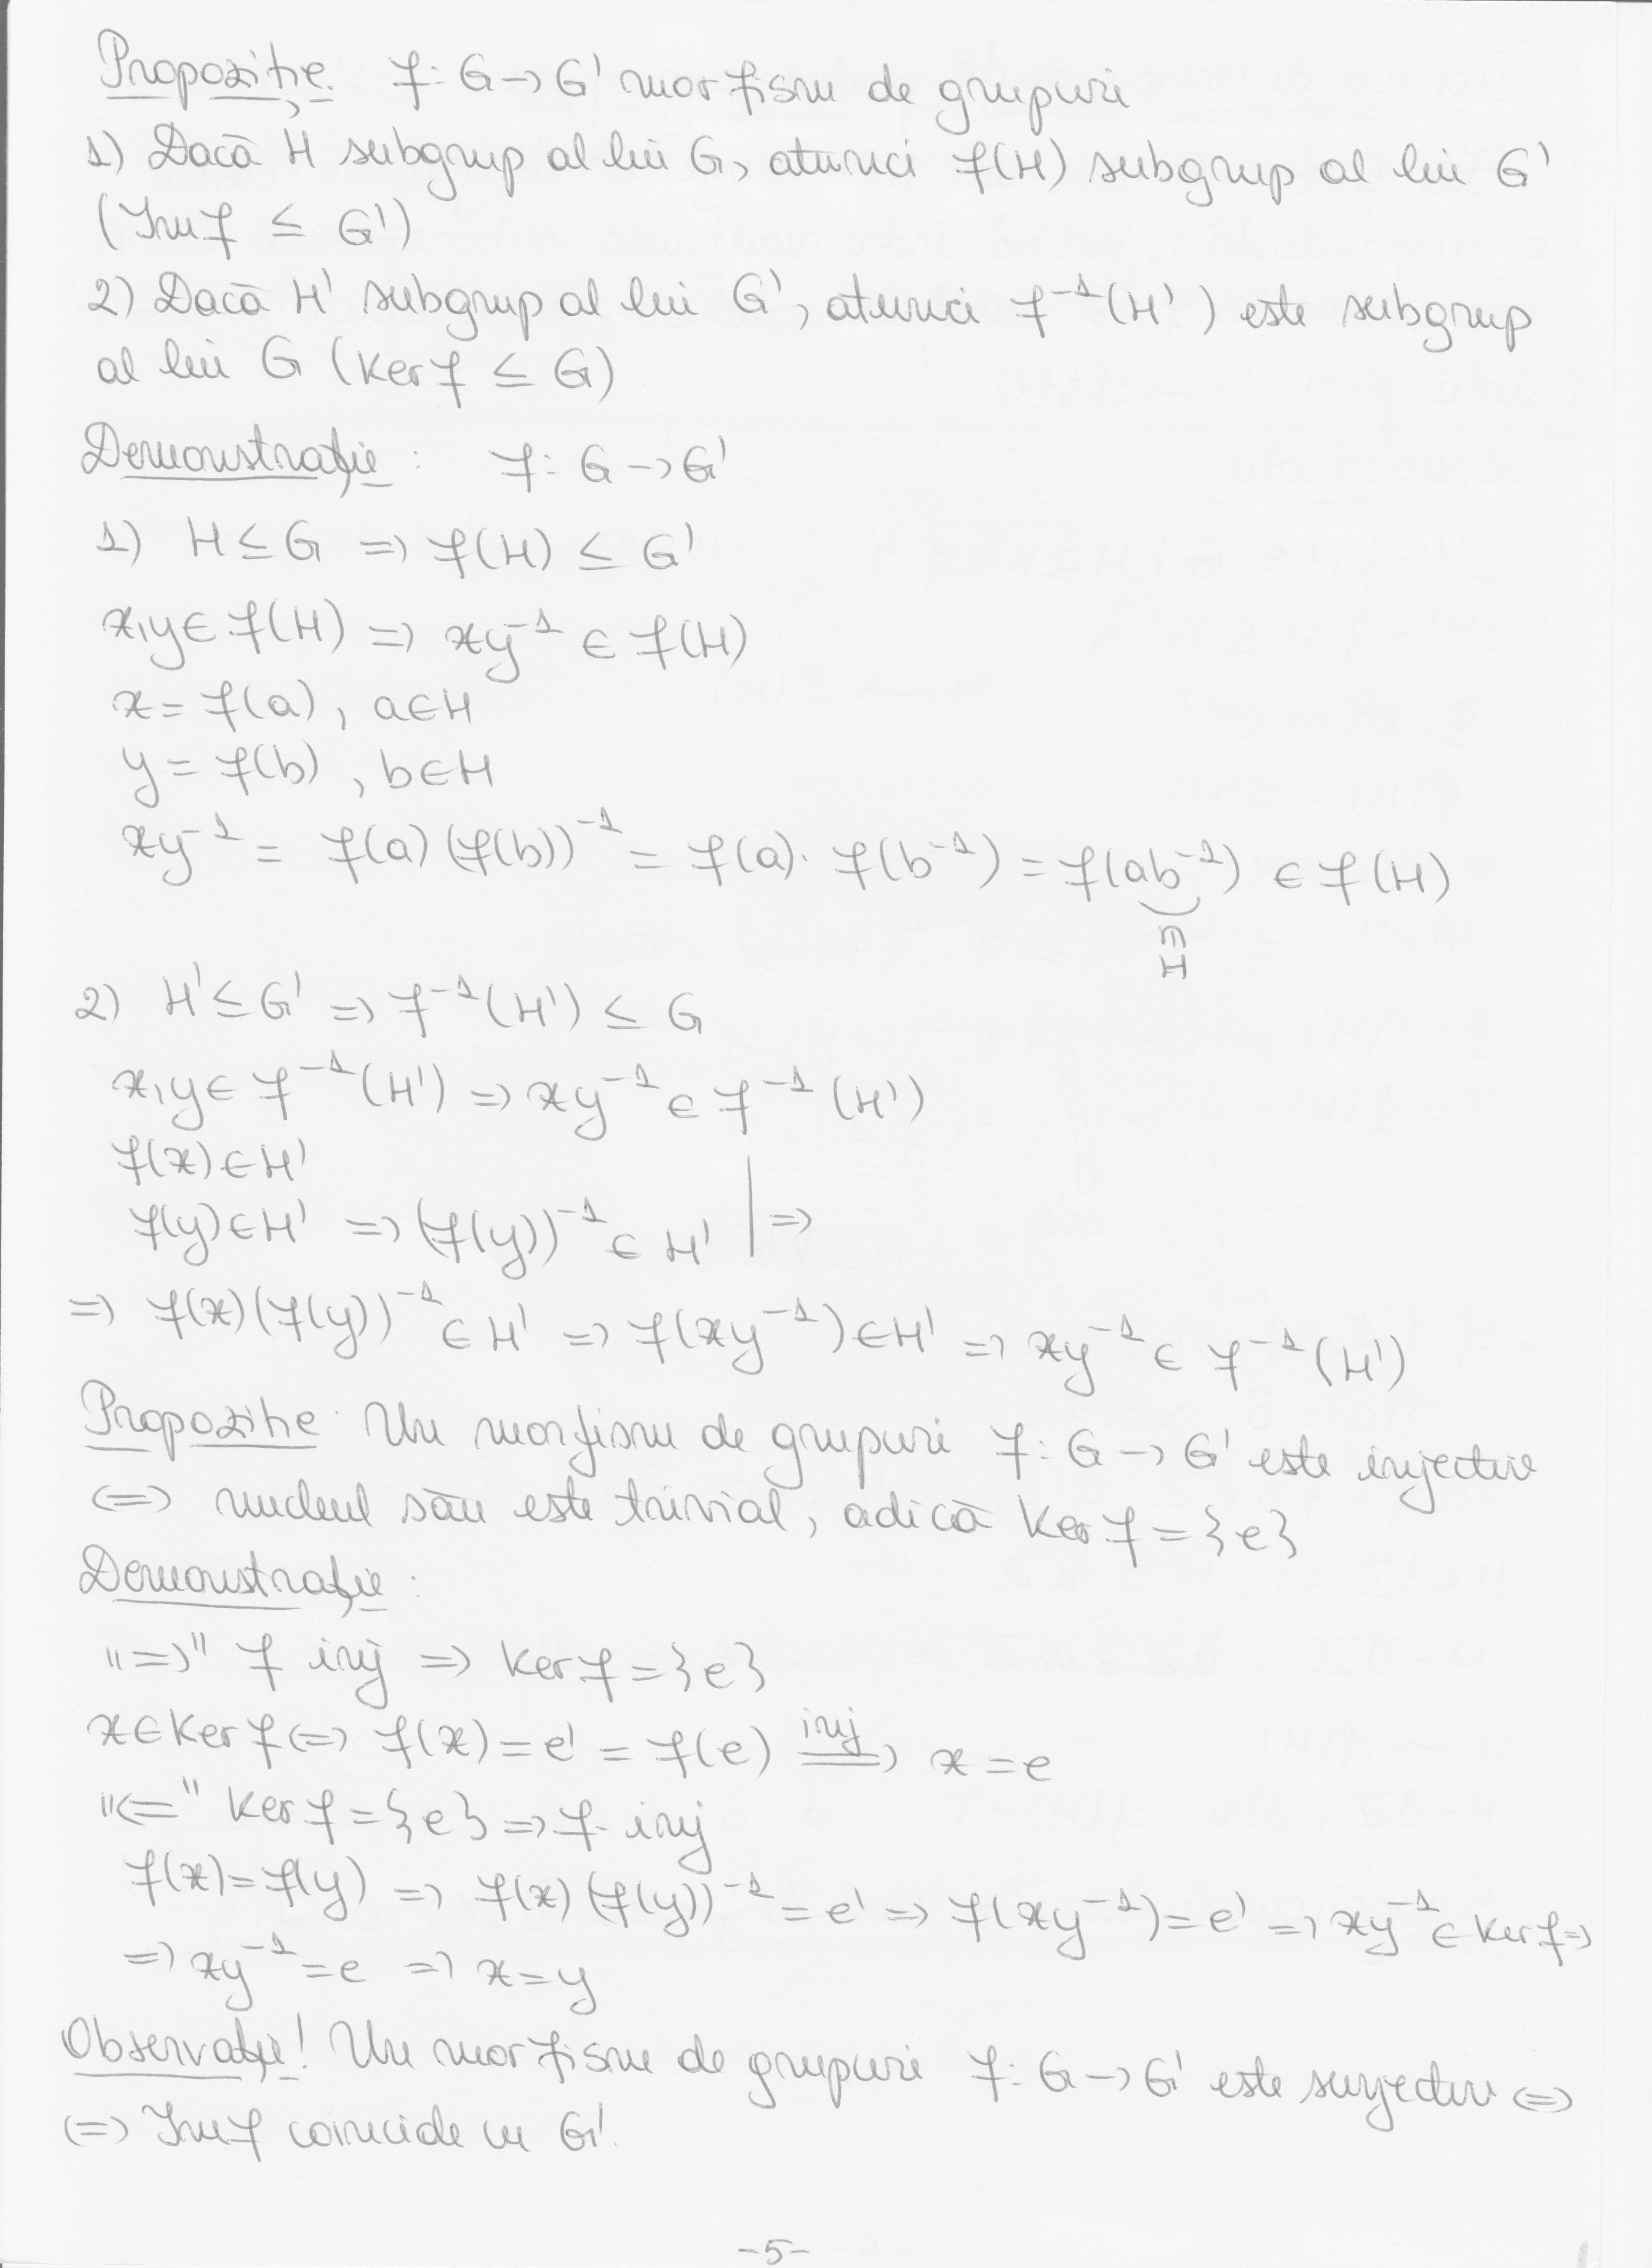 Propoziție. f: G → G' morfism de grupuri
1) Dacă H subgrup al lui G, atunci f(H) subgrup al lui G'
(Im f ≤ G')
2) Dacă H' subgrup al lui G', atunci f⁻¹(H') este subgrup
al lui G (Ker f ≤ G)
Demonstrație : f: G → G'
1) H ≤ G => f(H) ≤ G'
x,y ∈ f(H) => xy⁻¹ ∈ f(H)
x = f(a), a ∈ H
y = f(b), b ∈ H
xy⁻¹ = f(a) (f(b))⁻¹ = f(a) · f(b⁻¹) = f(ab⁻¹) ∈ f(H)
∈ H
2) H' ≤ G' => f⁻¹(H') ≤ G
x,y ∈ f⁻¹(H') => xy⁻¹ ∈ f⁻¹(H')
f(x) ∈ H'
f(y) ∈ H' => (f(y))⁻¹ ∈ H' | =>
=> f(x)(f(y))⁻¹ ∈ H' => f(xy⁻¹) ∈ H' => xy⁻¹ ∈ f⁻¹(H')
Propozitie. Un morfism de grupuri f: G → G' este injectiv
<=> nucleul său este trivial, adică Ker f = {e}
Demonstrație :
"=>" f inj => Ker f = {e}
x ∈ Ker f <=> f(x) = e' = f(e) inj => x = e
"<=" Ker f = {e} => f inj
f(x) = f(y) => f(x) (f(y))⁻¹ = e' => f(xy⁻¹) = e' => xy⁻¹ ∈ Ker f =>
=> xy⁻¹ = e => x = y
Observație! Un morfism de grupuri f: G → G' este surjectiv <=>
<=> Im f coincide cu G'.
-5-